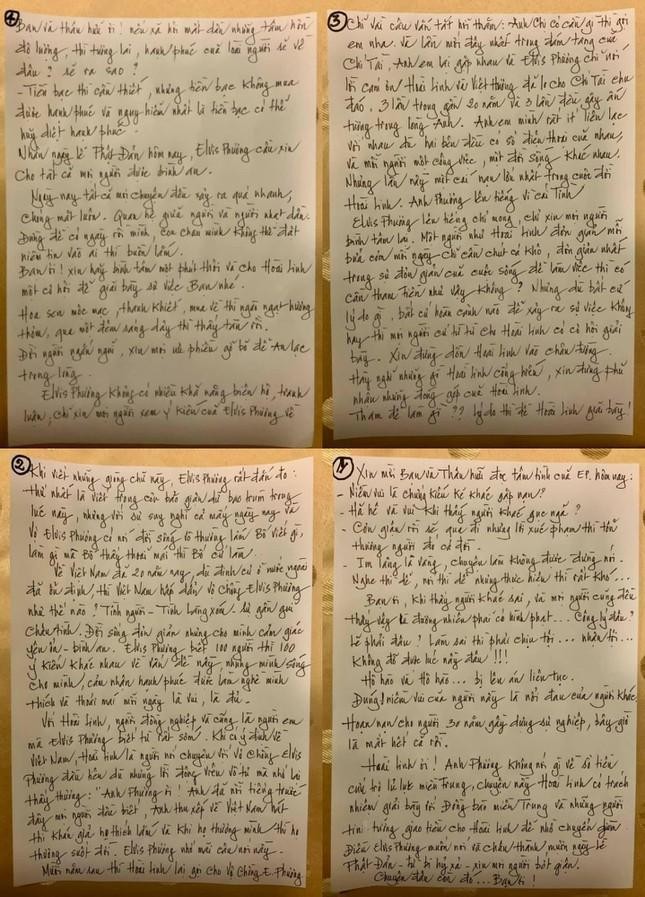 1
Xin mời Bạn và Thân hữu đọc tâm tình của EP. hôm nay:
- Niềm vui là chứng kiến kẻ khác gặp nạn?
- Hả hê và vui khi thấy người khác gục ngã?
- Cơn giận rồi sẽ qua đi nhưng lời xúc phạm thì tổn
thương người đó cả đời.
- Im lặng là vàng, chuyện làm không được đừng nói.
Nghe thì dễ, nói thì dễ nhưng thực hiện thì rất khó...
Bạn ơi, khi thấy người khác sai, và mọi người cũng đều
thấy vậy là đương nhiên phải có hình phạt... Công lý đâu?
Lẽ phải đâu? Làm sai thì phải chịu tội... nhận tội...
không đổ được lúc này đâu!!!
Hô hào và hô hào... bị lên án liên tục.
Đúng! niềm vui của người này là nỗi đau của người khác.
Hoạn nạn cho người 30 năm gầy dựng sự nghiệp, bây giờ
là mất hết cả rồi.
Hoài Linh ơi! Anh Phương không nói gì về số tiền
cứu trợ lũ lụt miền Trung, chuyện này Hoài Linh có trách
nhiệm giải bày với Đồng bào miền Trung và những người
tin tưởng giao tiền cho Hoài Linh để nhờ chuyển
Điều Elvis Phương muốn nói và chân thành, mượn ngày lễ
Phật Đản - từ bi hỷ xả - xin mọi người bớt giận.
Chuyện đâu còn đó... Bạn ơi!
2
Khi viết những giòng chữ này, Elvis Phương rất đắn đo:
thứ nhất là viết trong cơn bão giận dữ bao trùm trong
lúc này, nhưng với sự suy nghĩ cả mấy ngày nay và
Vợ Elvis Phương có nói đời sống vô thường lắm Bố viết gì,
làm gì mà Bố thấy thoải mái thì Bố cứ làm.
Về Việt Nam đã 20 năm nay, dù định cư ở nước ngoài
đã ổn định, thì Việt Nam hấp dẫn vợ chồng Elvis Phương
như thế nào? Tình người - Tình làng xóm. Sự gần gũi
chân tình. Đời sống đơn giản nhưng cho mình cảm giác
yên ổn - bình an. Elvis Phương biết 100 người thì 100
ý kiến khác nhau về vấn đề này, nhưng mình sống
cho mình, cảm nhận hạnh phúc được làm nghề mình
thích và thoải mái mỗi ngày là vui, là đủ.
Với Hoài Linh, người đồng nghiệp và cũng là người em
mà Elvis Phương biết từ rất sớm. Khi có ý định về
Việt Nam, Hoài Linh là người nói chuyện với vợ chồng Elvis
Phương đầu tiên dù những lời động viên vô tư mà nhớ lại
thấy thương: "Anh Phương ơi! Anh đã nổi tiếng trước
đây mọi người đều biết, Anh thu xếp về Việt Nam hát
thì khán giả họ thích lắm và khi họ thương mình thì họ
thương suốt đời. Elvis Phương nhớ mãi câu nói này.
Mười năm sau thì Hoài Linh lại gọi cho Vợ Chồng E. Phương
3
Chỉ vài câu vắn tắt hỏi thăm: Anh Chị có cần gì thì gọi
em nha. Và lần mới đây nhất trong đám tang của
Chí Tài, Anh em lại gặp nhau và Elvis Phương chỉ nói
lời cám ơn Hoài Linh và Việt Hương đã lo cho Chí Tài chu
đáo. 3 lần trong gần 20 năm và 3 lần đều gây ấn
tượng trong lòng Anh. Anh em mình rất ít liên lạc
với nhau dù hai bên đều có số điện thoại của nhau,
và mỗi người một công việc, một đời sống khác nhau.
Nhưng lần này một cái nạn lớn nhất trong cuộc đời
Hoài Linh. Anh Phương lên tiếng vì cái Tình
Elvis Phương lên tiếng chỉ mong, chỉ xin mọi người
bình tâm lại. Một người như Hoài Linh đơn giản mỗi
bữa cơm mỗi ngày - chỉ cần chút cá khô, đơn giản nhất
trong sự đơn giản của cuộc sống để làm việc thì có
cần tham tiền như vậy không? Nhưng dù bất cứ
lý do gì, bất cứ hoàn cảnh nào để xảy ra sự việc không
hay thì mọi người cứ từ từ cho Hoài Linh có cơ hội giải
bày. Xin đừng dồn Hoài Linh vào chân tường.
Hãy nghĩ những gì Hoài Linh cống hiến, xin đừng phủ
nhận những đóng góp của Hoài Linh.
Tham để làm gì?? Lý do thì để Hoài Linh giải bày!
4
Bạn và thân hữu ơi! nếu xã hội mất dần những tấm lòng
độ lượng, thì tương lai, hạnh phúc của loài người sẽ về
đâu? sẽ ra sao?
- Tiền bạc thì cần thiết, nhưng tiền bạc không mua
được hạnh phúc và nguy hiểm nhất là tiền bạc có thể
hủy diệt hạnh phúc.
Nhân ngày lễ Phật Đản hôm nay, Elvis Phương cầu xin
cho tất cả mọi người được bình an.
Ngày nay tất cả mọi chuyện đều xảy ra quá nhanh,
chóng mặt luôn. Quan hệ giữa người và người nhạt dần.
Đừng để có ngày rồi mình con cháu mình không thể đặt
niềm tin vào ai thì buồn lắm.
Bạn ơi! xin hãy bình tâm một phút thôi và cho Hoài Linh
một cơ hội để giải bày sự việc Bạn nhé.
Hoa sen mộc mạc, thanh khiết, mua về thì ngào ngạt hương
thơm, qua một đêm sáng dậy thì thấy tàn rồi.
Đời người ngắn ngủi, xin mọi ưu phiền gỡ bỏ để An lạc
trong lòng.
Elvis Phương không có nhiều khả năng biện hộ, tranh
luận, chỉ xin mọi người xem ý kiến của Elvis Phương về